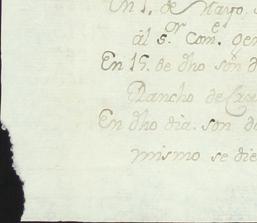 En 1. de Mayo.
al s.or Com.e gen
En 15. de dho son d
Rancho de Cas
En dho dia. son de
mismo se die